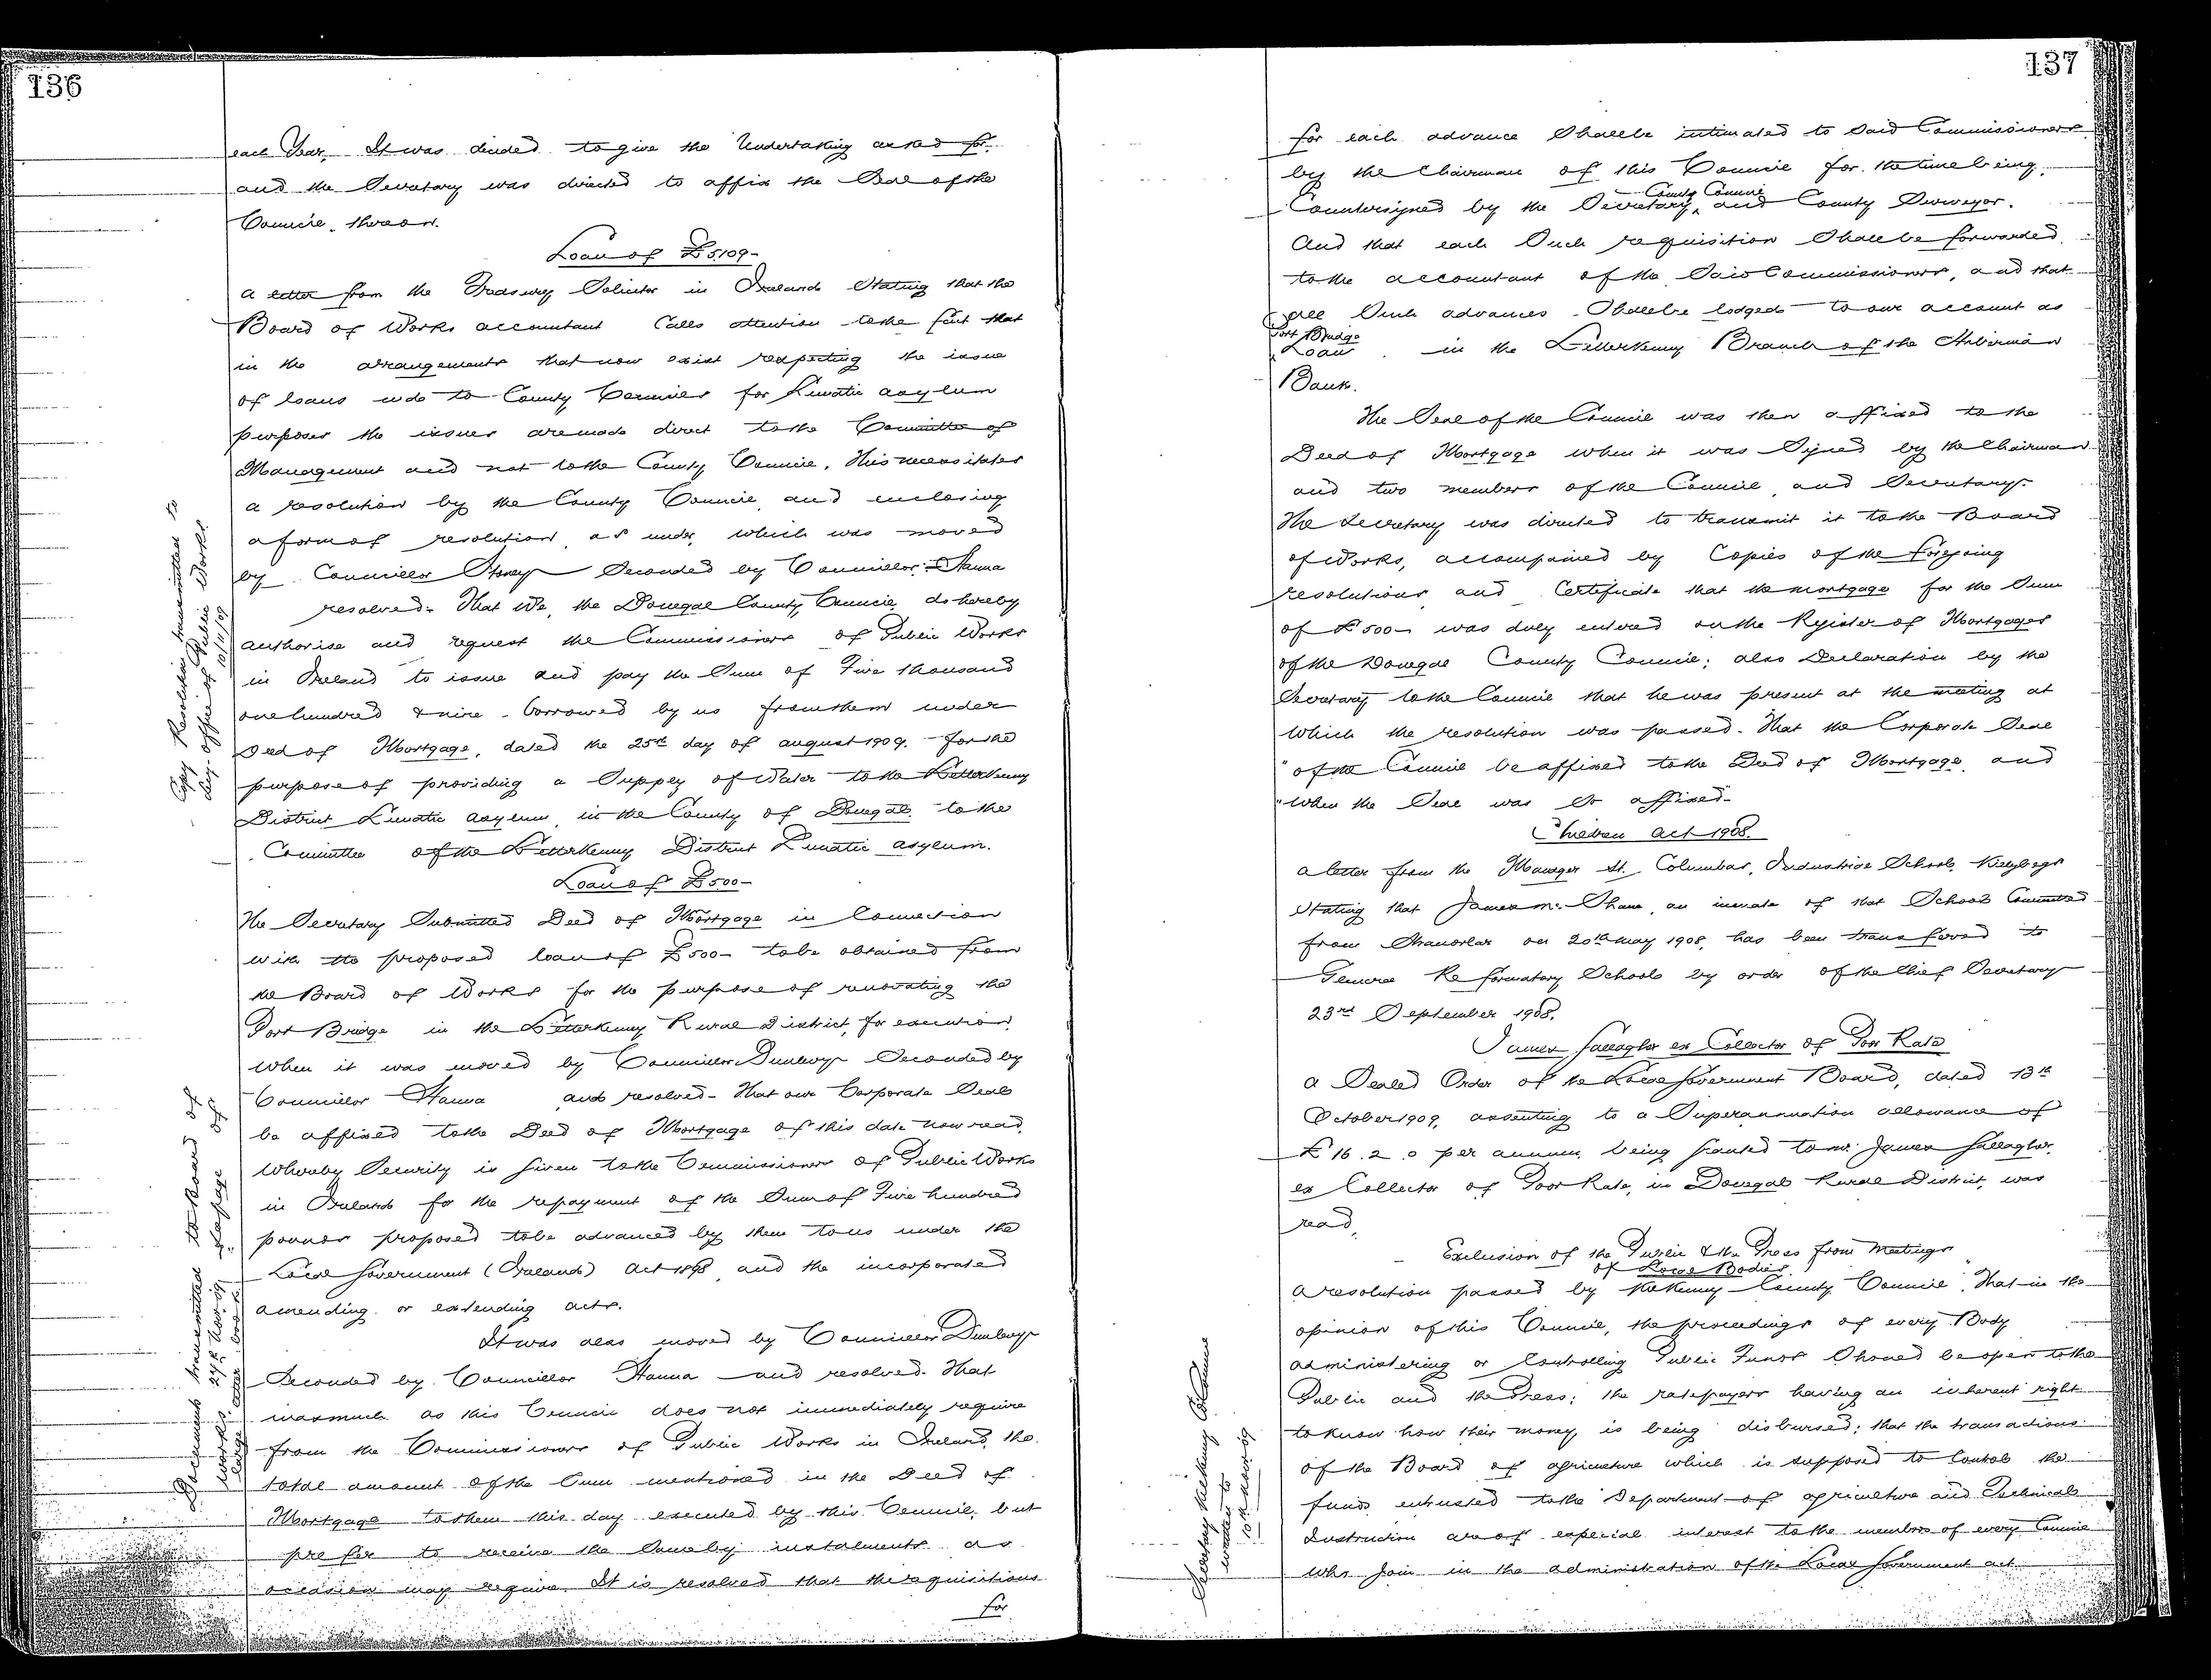 136
each Year. It was decided to give the Undertaking asked for
and the Secretary was directed to affix the Seal of the
Council thereon.
Loan of £5109-
a letter from the Treasury Solicitor in Ireland Stating that the
Board of Works accountant Calls attention to the fact that
in the arrangements that now exist respecting the issue
of loans made to County Councils for Lunatic asylum
purposes the issues are made direct to the Committee of
Management and not to the County Council. This necessitates
a resolution by the County Council and enclosing
a form of resolution as under, which was moved
by Councillor Storey Seconded by Councillor Hanna
resolved- That We, the Donegal County Council do hereby
authorise and request the Commissioners of Public Works
in Ireland to issue and pay the Sum of Five thousand
one hundred & nine - borrowed by us from them under
Deed of Mortgage, dated the 25th day of august 1909. - for the
purpose of providing a Supply of Water to the Letterkenny
District Lunatic asylum in the County of Donegal to the
Committee of the Letterkenny District Lunatic asylum.
Copy Resolution transmitted to
Office of Public Works
10/11/09
Loan of £500-
The Secretary Submitted Deed of Mortgage in Connection
with the proposed loan of £500- to be obtained from
the Board of Works for the purpose of renovating the
Port Bridge in the Letterkenny Rural District, for execution
When it was moved by Councillor Dunlevy Seconded by
Councillor Hanna and resolved- That our Corporate Seal
be affixed to the Deed of Mortgage of this date now read,
Whereby Security is given to the Commissioners of Public Works
in Ireland for the repayment of the Sum of Five hundred
pounds proposed to be advanced by them to us under the
Local Government (Ireland) Act 1898 and the incorporated
amending or extending acts.
It was also moved by Councillor Dunlevy
Seconded by Councillor Hanna and resolved. That
inasmuch as this Council does not immediately require
from the Commissioners of Public Works in Ireland the
total amount of the Sum mentioned in the Deed of
Mortgage to them this day executed by this Council, but
prefer to receive the Same by instalments as
occasion may require. It is resolved that the requisitions
for
Documents transmitted to Board of
Works
27th Nov. 09
137
for each advance Shall be intimated to Said Commissioners
by the Chairman of this Council for the time being.
County Council
Countersigned by the Secretary, and County Surveyor.
And that each Such requisition Shall be forwarded
to the accountant of the Said Commissioners, and that
all Such advances Shall be lodged to our account as
Port Bridge
Loan in the Letterkenny Branch of the Hibernian
Bank.
The Seal of the Council was then affixed to the
Deed of Mortgage when it was Signed by the Chairman
and two members of the Council, and Secretary.
The Secretary was directed to transmit it to the Board
of Works, accompanied by Copies of the foregoing
resolutions and Certificate that the mortgage for the Sum
of £500- was duly entered on the Register of Mortgages
of the Donegal County Council; also Declaration by the
Secretary to the Council that he was present at the meeting at
Which the resolution was passed. That the Corporate Seal
"of the Council be affixed to the Deed of Mortgage, and
"When the Seal was So affixed-
Children Act 1908.
a letter from the Manager St. Columbas, Industrial School, Killybegs
Stating that James Mc Shane, an inmate of that School Committed
from Stranorlar on 20th May 1908, has been transferred to
Glencree Reformatory School by order of the Chief Secretary
23rd September 1908.
James Gallagher ex Collector of Poor Rate
a Sealed Order of the Local Government Board, dated 13th
October 1909, assenting to a Superannuation allowance of
£16.2.0 per annum being granted to Mr. James Gallagher,
ex Collector of Poor Rate, in Donegal Rural District, was
read.
Exclusion of the Public & the Press from Meetings
of Local Bodies
A resolution passed by Kilkenny County Council "That in the
opinion of this Council, the proceedings of every Body
administering or Controlling Public Funds Should be open to the
Public and the Press; the ratepayers having an inherent right
to know how their money is being disbursed; that the transactions
of the Board of agriculture which is supposed to Control the
funds entrusted to the Department of agriculture and Technical
Instruction are of especial interest to the members of every Council
who join in the administration of the Local Government act
Secretary Kilkenny Co Council
written to
10th Novr 09